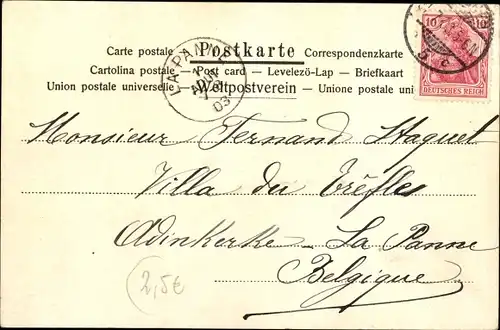 Carte postale – Postkarte – Correspondenzkarte
Cartolina postale – Post card – Levelezö-Lap – Briefkaart
Union postale universelle – Weltpostverein – Unione postale uni
LA PANNE
03
10 10
DEUTSCHES REICH
Monsieur Fernand Haguet
Villa du Trêfles
Adinkerke - La Panne
Belgique
2,5€